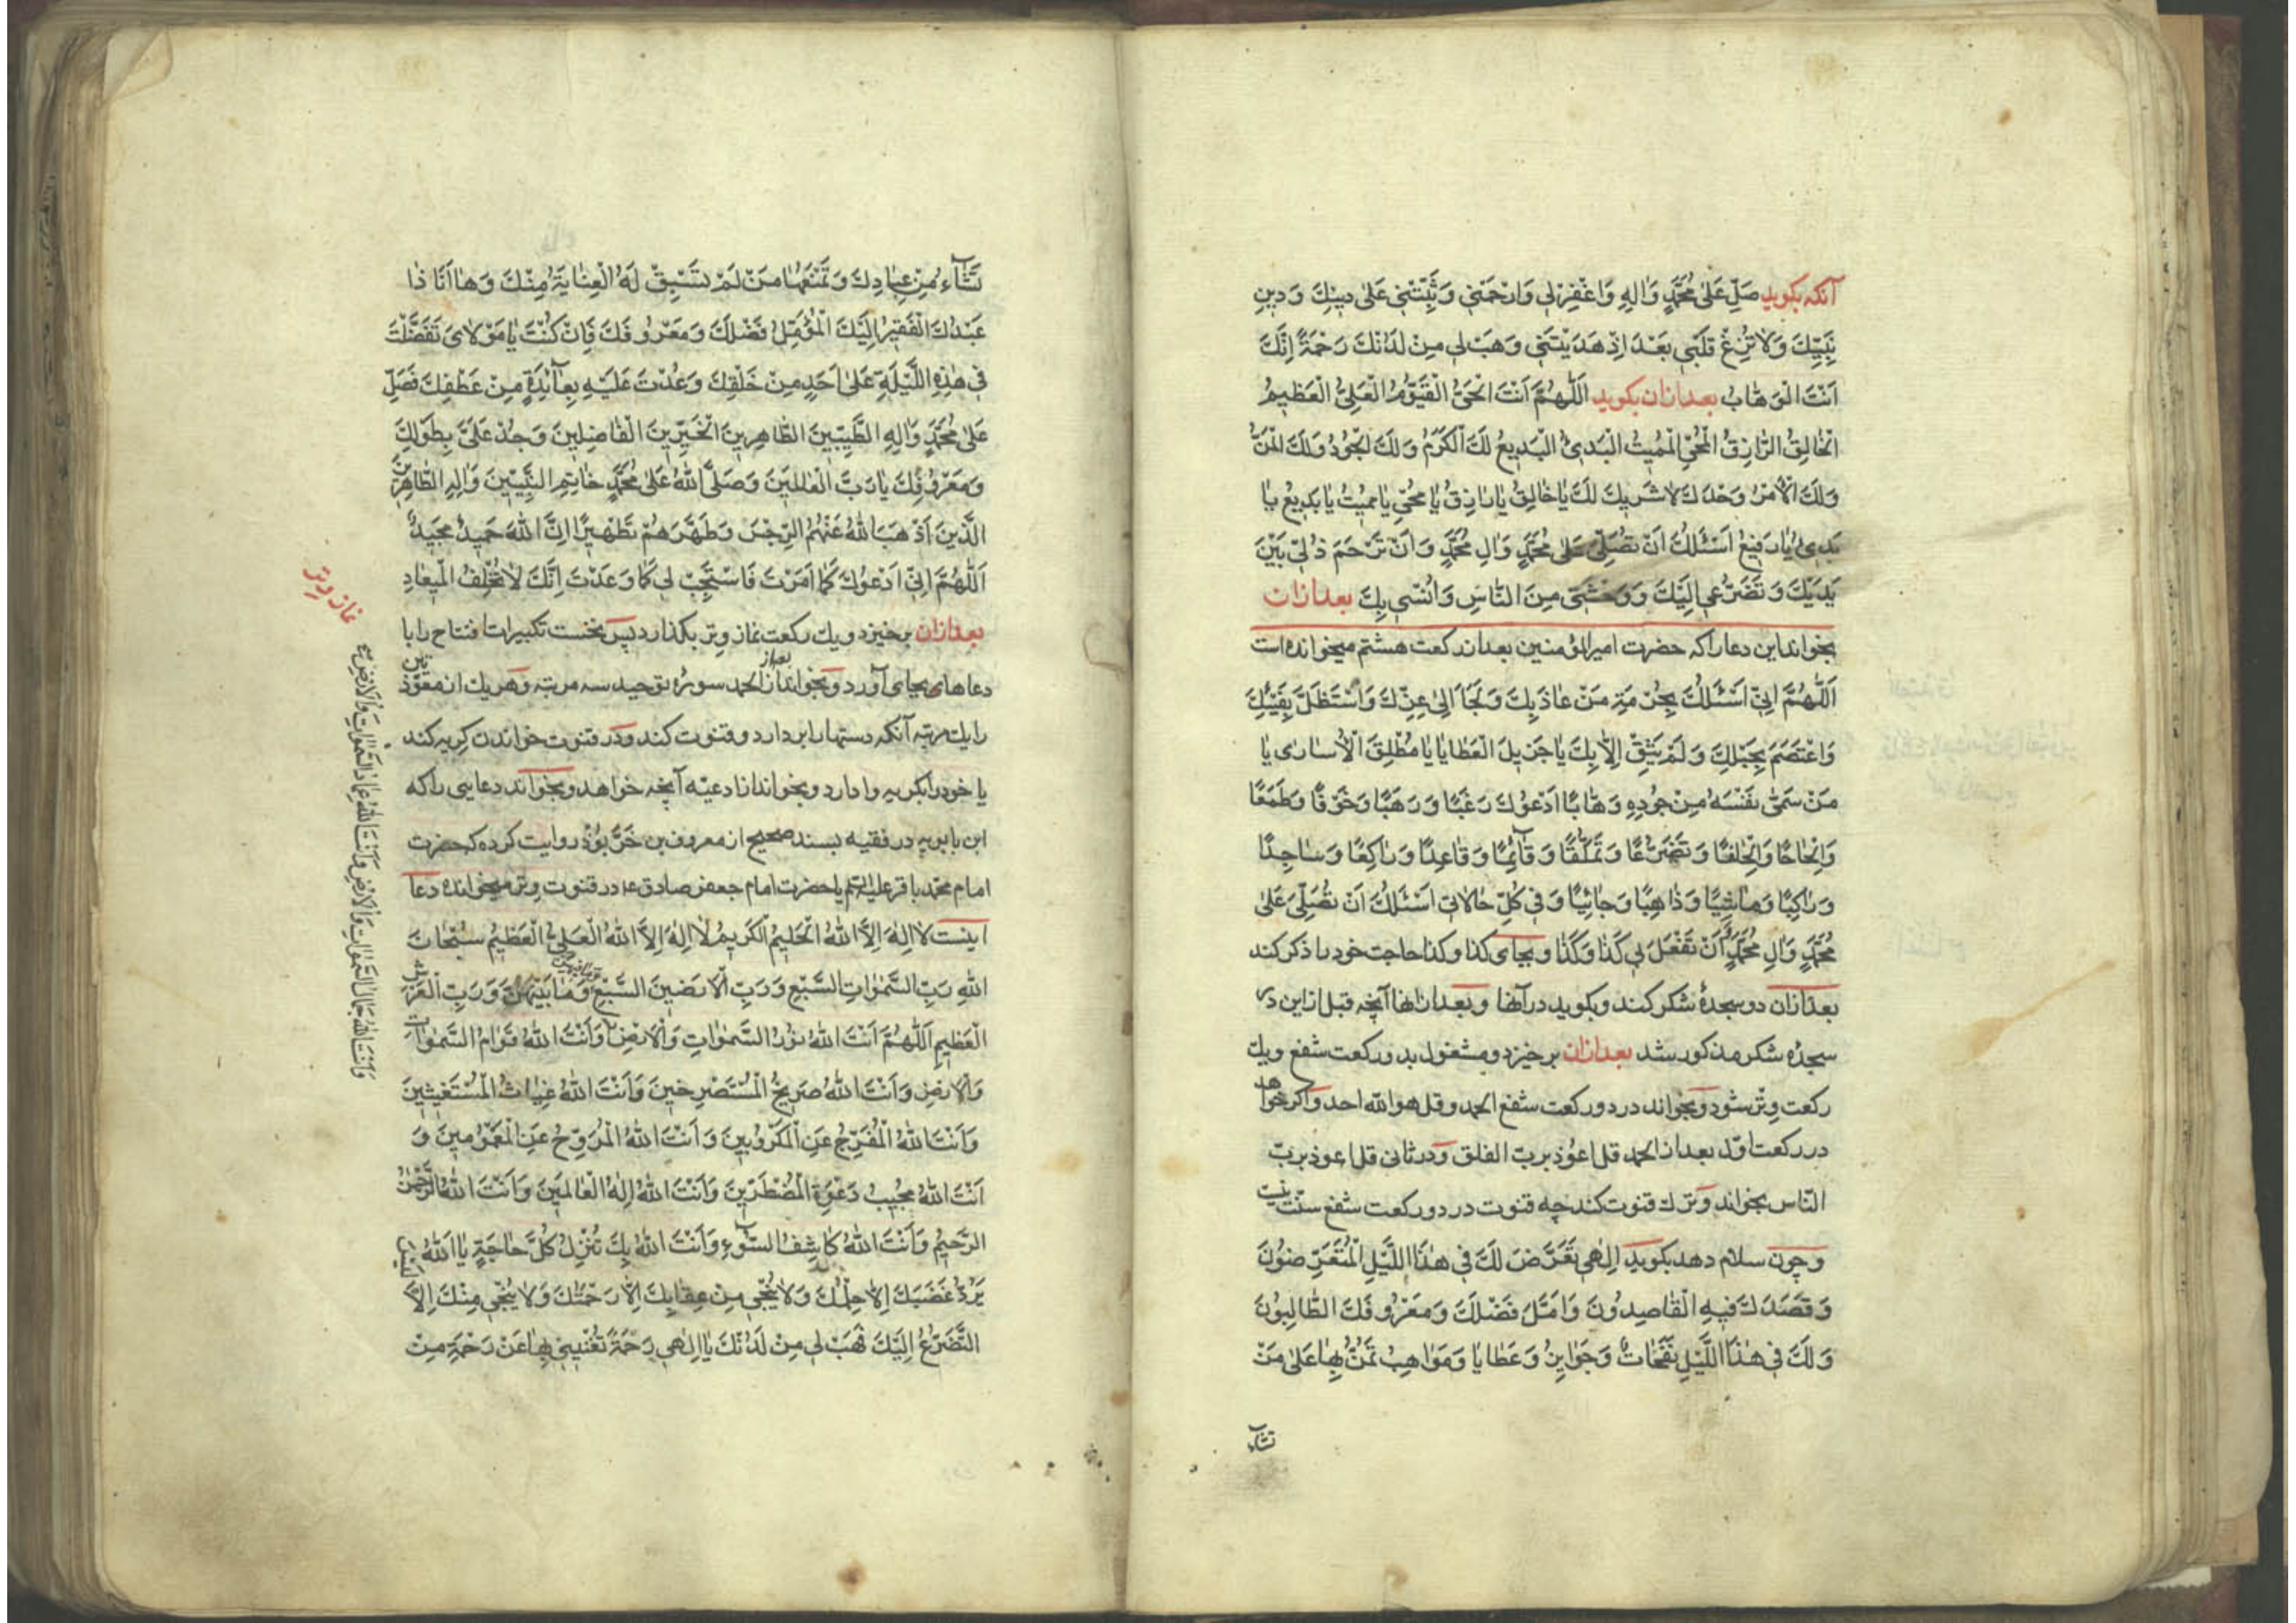 آنکه بکوید صَلِّ عَلیٰ مُحَمَّدٍ وَاٰلِهِ وَاغْفِرْلٖی وَارْحَمْنٖی وَثَبِّتْنٖی عَلیٰ دٖینِكَ وَدٖینِ
نَبِیِّكَ وَلاٰ تُزِغْ قَلْبٖی بَعْدَ اِذْ هَدَیْتَنٖی وَهَبْ لٖی مِنْ لَدُنْكَ رَحْمَةً اِنَّكَ
اَنْتَ الْوَهّٰابُ بعدازان بکوید اَللّٰهُمَّ اَنْتَ الْحَیُّ الْقَیُّوْمُ الْعَلِیُّ الْعَظٖیمُ
الْخٰالِقُ الرّٰازِقُ الْمُحْیِی الْمُمٖیتُ الْبَدٖیُٔ الْبَدٖیعُ لَكَ الْكَرَمُ وَلَكَ الْجُوْدُ وَلَكَ الْمَنُّ
وَلَكَ الْاَمْرُ وَحْدَكَ لاٰ شَرٖیكَ لَكَ یٰا خٰالِقُ یٰا رٰازِقُ یٰا مُحْیٖی یٰا مُمٖیتُ یٰا بَدٖیعُ یٰا
بَدٖیُٔ یٰا رَفٖیعُ اَسْئَلُكَ اَنْ تُصَلِّیَ عَلیٰ مُحَمَّدٍ وَاٰلِ مُحَمَّدٍ وَاَنْ تَرْحَمَ ذُلّٖی بَیْنَ
یَدَیْكَ وَتَضَرُّعٖی اِلَیْكَ وَوَحْشَتٖی مِنَ النّٰاسِ وَاُنْسٖی بِكَ بعدازان
بخواند این دعا را که حضرت امیرالمؤمنین بعد از رکعت هشتم میخوانده است
اَللّٰهُمَّ اِنّٖی اَسْئَلُكَ بِحُرْمَةِ مَنْ عٰاذَ بِكَ وَلَجَأَ اِلیٰ عِزِّكَ وَاسْتَظَلَّ بِفَیْئِكَ
وَاعْتَصَمَ بِحَبْلِكَ وَلَمْ یَثِقْ اِلاّٰ بِكَ یٰا جَزٖیلَ الْعَطٰایٰا یٰا مُطْلِقَ الْاُسٰارٰی یٰا
مَنْ سَمّٰی نَفْسَهُ مِنْ جُوْدِهِ وَهّٰابًا اَدْعُوْكَ رَغَبًا وَرَهَبًا وَخَوْفًا وَطَمَعًا
وَاِلْحٰاحًا وَاِلْحٰافًا وَتَضَرُّعًا وَتَمَلُّقًا وَقٰآئِمًا وَقٰاعِدًا وَرٰاكِعًا وَسٰاجِدًا
وَرٰاكِبًا وَمٰاشِیًا وَذٰاهِبًا وَجٰائِیًا وَفٖی كُلِّ حٰالاٰتٖی اَسْئَلُكَ اَنْ تُصَلِّیَ عَلیٰ
مُحَمَّدٍ وَاٰلِ مُحَمَّدٍ وَاَنْ تَفْعَلَ بٖی كَذٰا وَكَذٰا و بجای کذا و کذا حاجت خود را ذکر کند
بعدازان دو سجدهٔ شکر کند و بکوید در آنها و بعد ازانها آنچه قبل ازین در
سجدهٔ شکر مذکور شد بعدازان برخیزد و مشغول بدو رکعت شفع و یك
رکعت وتر شود و بخواند در دو رکعت شفع الحمد و قل هو الله احد و اکر خواهد
در رکعت اوّل بعد از الحمد قل اعوذ بربّ الفلق و در ثانی قل اعوذ بربّ
النّاس بخواند و ترك قنوت کند چه قنوت در دو رکعت شفع سنّت نیست
و چون سلام دهد بکوید اِلٰهٖی تَعَرَّضَ لَكَ فٖی هٰذَا اللَّیْلِ الْمُتَعَرِّضُوْنَ
وَقَصَدَكَ فٖیهِ الْقٰاصِدُوْنَ وَاَمَّلَ فَضْلَكَ وَمَعْرُوْفَكَ الطّٰالِبُوْنَ
وَلَكَ فٖی هٰذَا اللَّیْلِ نَفَحٰاتٌ وَجَوٰایِزُ وَعَطٰایٰا وَمَوٰاهِبُ تَمُنُّ بِهٰا عَلیٰ مَنْ
تشاء
تَشٰآءُ مِنْ عِبٰادِكَ وَتَمْنَعُهٰا مَنْ لَمْ تَسْبِقْ لَهُ الْعِنٰایَةُ مِنْكَ وَهٰا اَنَا ذٰا
عَبْدُكَ الْفَقٖیرُ اِلَیْكَ الْمُؤَمِّلُ فَضْلَكَ وَمَعْرُوفَكَ فَاِنْ كُنْتَ یٰا مَوْلاٰیَ تَفَضَّلْتَ
فٖی هٰذِهِ اللَّیْلَةِ عَلیٰ اَحَدٍ مِنْ خَلْقِكَ وَعُدْتَ عَلَیْهِ بِعٰآئِدَةٍ مِنْ عَطْفِكَ فَصَلِّ
عَلیٰ مُحَمَّدٍ وَاٰلِهِ الطَّیِّبٖینَ الطّٰاهِرٖینَ الْخَیِّرٖینَ الْفٰاضِلٖینَ وَجُدْ عَلَیَّ بِطَوْلِكَ
وَمَعْرُوْفِكَ یٰا رَبَّ الْعٰالَمٖینَ وَصَلَّی اللّٰهُ عَلیٰ مُحَمَّدٍ خٰاتِمِ النَّبِیّٖینَ وَاٰلِهِ الطّٰاهِرٖینَ
الَّذٖینَ اَذْهَبَ اللّٰهُ عَنْهُمُ الرِّجْسَ وَطَهَّرَهُمْ تَطْهٖیرًا اِنَّ اللّٰهَ حَمٖیدٌ مَجٖیدٌ
اَللّٰهُمَّ اِنّٖی اَدْعُوْكَ كَمٰا اَمَرْتَ فَاسْتَجِبْ لٖی كَمٰا وَعَدْتَ اِنَّكَ لاٰ تُخْلِفُ الْمٖیعٰادَ
نماز وتر
بعدازان برخیزد و یك رکعت نماز وتر بکذارد پس نخست تکبیرات افتتاح را با
دعاهای بجای آورد و بخواند بعد از الحمد سورهٔ توحید سه مرتبه و هر یك از معوّذتین
را یك مرتبه آنکه دستها را بردارد و قنوت کند و در قنوت خواندن کریه کند
یا خود را بکریه وا دارد و بخواند از ادعیه آنچه خواهد و بخواند دعایی را که
ابن بابویه در فقیه بسند صحیح از معروف بن خرّبوذ روایت کرده که حضرت
امام محمّد باقر علیه السّلم یا حضرت امام جعفر صادق ع در قنوت وتر میخوانده دعا
اینست لاٰ اِلٰهَ اِلاَّ اللّٰهُ الْحَلٖیمُ الْكَرٖیمُ لاٰ اِلٰهَ اِلاَّ اللّٰهُ الْعَلِیُّ الْعَظٖیمُ سُبْحٰانَ
اللّٰهِ رَبِّ السَّمٰوٰاتِ السَّبْعِ وَرَبِّ الْاَرَضٖینَ السَّبْعِ وَمٰا بَیْنَهُنَّ وَرَبِّ الْعَرْشِ
الْعَظٖیمِ اَللّٰهُمَّ اَنْتَ اللّٰهُ نُوْرُ السَّمٰوٰاتِ وَالْاَرْضِ وَاَنْتَ اللّٰهُ قَوٰامُ السَّمٰوٰاتِ
وَاَنْتَ اللّٰهُ جَمٰالُ السَّمٰوٰاتِ وَالْاَرْضِ وَاَنْتَ اللّٰهُ عِمٰادُ السَّمٰوٰاتِ وَالْاَرْضِ
وَالْاَرْضِ وَاَنْتَ اللّٰهُ صَرٖیخُ الْمُسْتَصْرِخٖینَ وَاَنْتَ اللّٰهُ غِیٰاثُ الْمُسْتَغٖیثٖینَ
وَاَنْتَ اللّٰهُ الْمُفَرِّجُ عَنِ الْمَكْرُوْبٖینَ وَاَنْتَ اللّٰهُ الْمُرَوِّحُ عَنِ الْمَغْمُوْمٖینَ وَ
اَنْتَ اللّٰهُ مُجٖیبُ دَعْوَةِ الْمُضْطَرّٖینَ وَاَنْتَ اللّٰهُ اِلٰهُ الْعٰالَمٖینَ وَاَنْتَ اللّٰهُ الرَّحْمٰنُ
الرَّحٖیمُ وَاَنْتَ اللّٰهُ كٰاشِفُ السُّوْٓءِ وَاَنْتَ اللّٰهُ بِكَ تُنْزَلُ كُلُّ حٰاجَةٍ یٰا اَللّٰهُ لَیْسَ
یَرُدُّ غَضَبَكَ اِلاّٰ حِلْمُكَ وَلاٰ یُنْجٖی مِنْ عِقٰابِكَ اِلاّٰ رَحْمَتُكَ وَلاٰ یُنْجٖی مِنْكَ اِلاَّ
التَّضَرُّعُ اِلَیْكَ فَهَبْ لٖی مِنْ لَدُنْكَ یٰا اِلٰهٖی رَحْمَةً تُغْنٖینٖی بِهٰا عَنْ رَحْمَةِ مَنْ